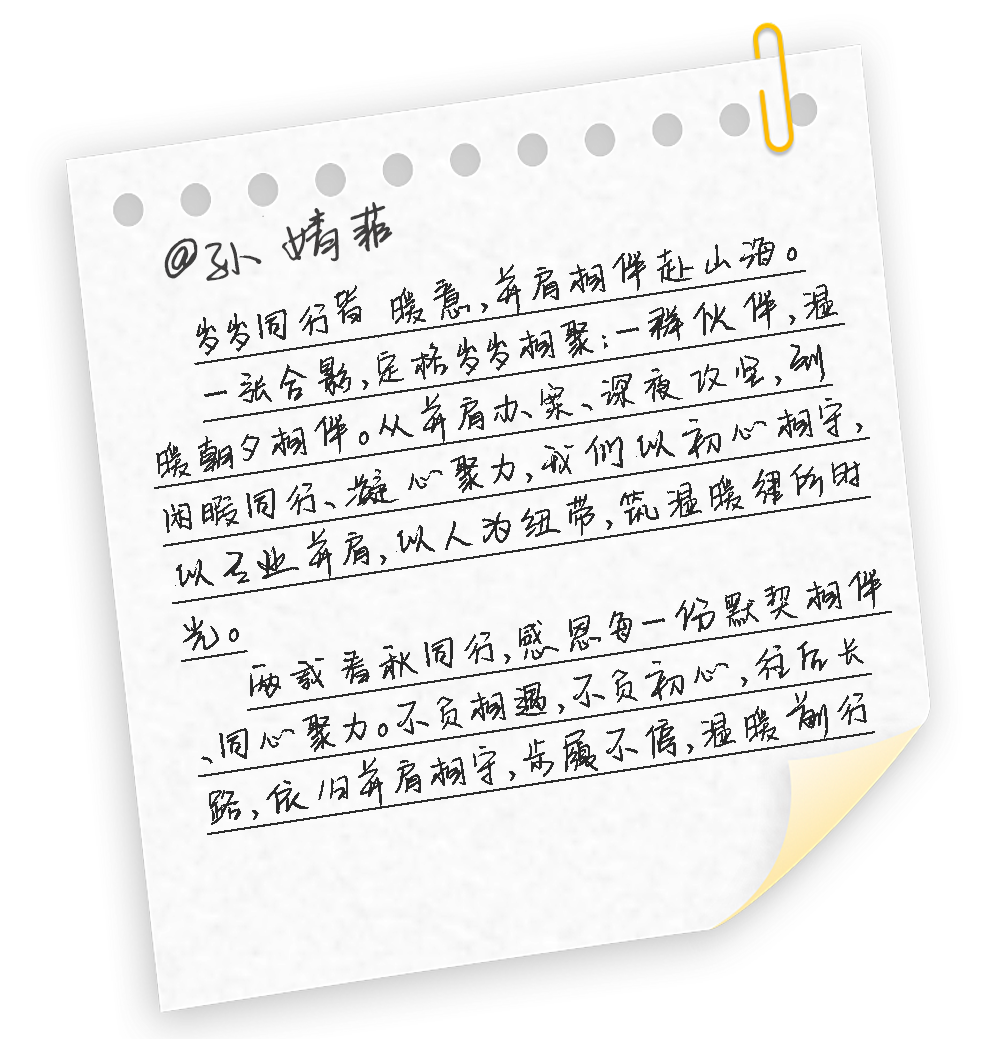 @孙婧菲
岁岁同行皆暖意,并肩相伴赴山海。
一张合影,定格岁岁相聚:一群伙伴,温
暖朝夕相伴。从并肩办案、深夜攻坚,到
闲暇同行、凝心聚力,我们以初心相守,
以专业并肩,以人为纽带,筑温暖律所时
光。
两载春秋同行,感恩每一份默契相伴
、同心聚力。不负相遇,不负初心,往后长
路,依旧并肩相守,步履不停,温暖前行